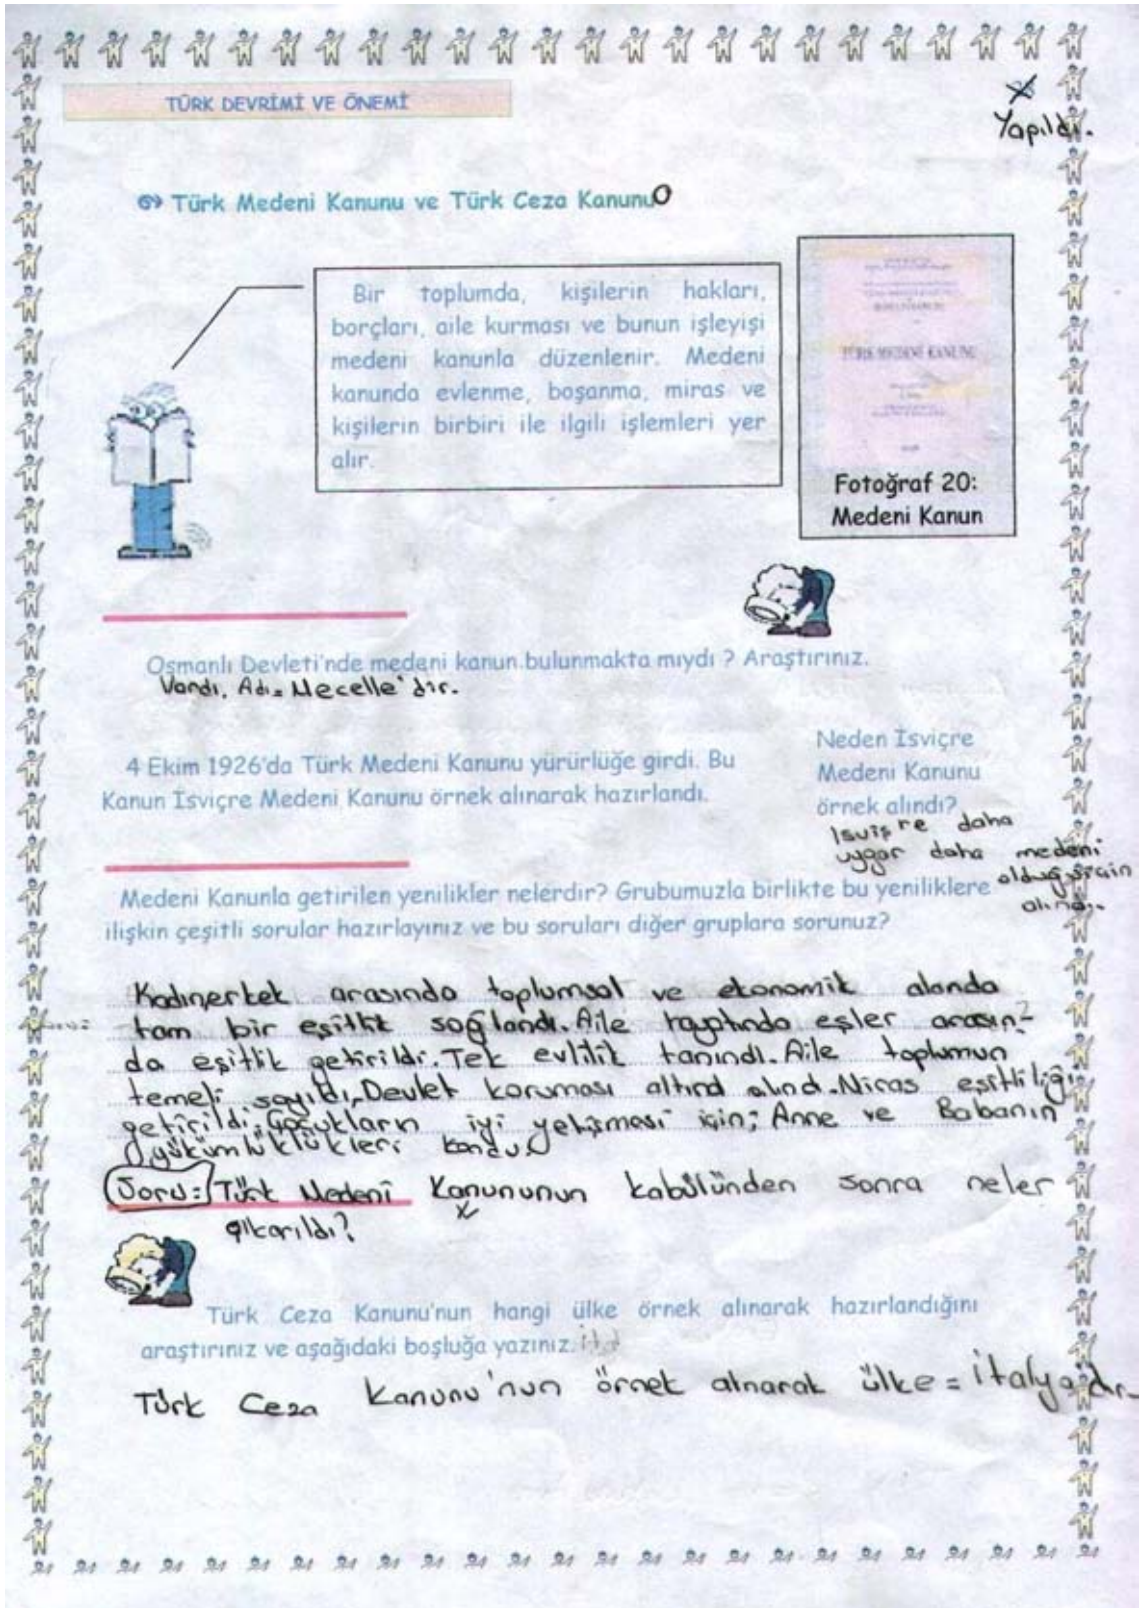 TÜRK DEVRİMİ VE ÖNEMİ
Yapıldı.
Türk Medeni Kanunu ve Türk Ceza Kanunu
Bir toplumda, kişilerin hakları,
borçları, aile kurması ve bunun işleyişi
medeni kanunla düzenlenir. Medeni
kanunda evlenme, boşanma, miras ve
kişilerin birbiri ile ilgili işlemleri yer
alır.
TÜRK MEDENİ KANUNU
Fotoğraf 20:
Medeni Kanun
Osmanlı Devleti'nde medeni kanun bulunmakta mıydı ? Araştırınız.
Vardı. Adı= Mecelle'dir.
4 Ekim 1926'da Türk Medeni Kanunu yürürlüğe girdi. Bu
Kanun İsviçre Medeni Kanunu örnek alınarak hazırlandı.
Neden İsviçre
Medeni Kanunu
örnek alındı?
Isviçre daha
uygar daha medeni
olduğu için
alındı.
Medeni Kanunla getirilen yenilikler nelerdir? Grubumuzla birlikte bu yeniliklere
ilişkin çeşitli sorular hazırlayınız ve bu soruları diğer gruplara sorunuz?
Kadınerkek arasında toplumsal ve ekonomik alanda
tam bir eşitlik sağlandı. Aile eşler arasın-
da eşitlik getirildi. Tek evlilik tanındı. Aile toplumun
temeli sayıldı, Devlet koruması altınd alınd. Miras eşitliliği
getirildi; Çocukların iyi yetişmesi için; Anne ve Babanın
yükümlülükleri kondu.
Soru: Türk Medeni Kanununun kabülünden sonra neler
çıkarıldı?
Türk Ceza Kanunu'nun hangi ülke örnek alınarak hazırlandığını
araştırınız ve aşağıdaki boşluğa yazınız.
Türk Ceza Kanunu'nun örnek alnarak ülke = italyadır.